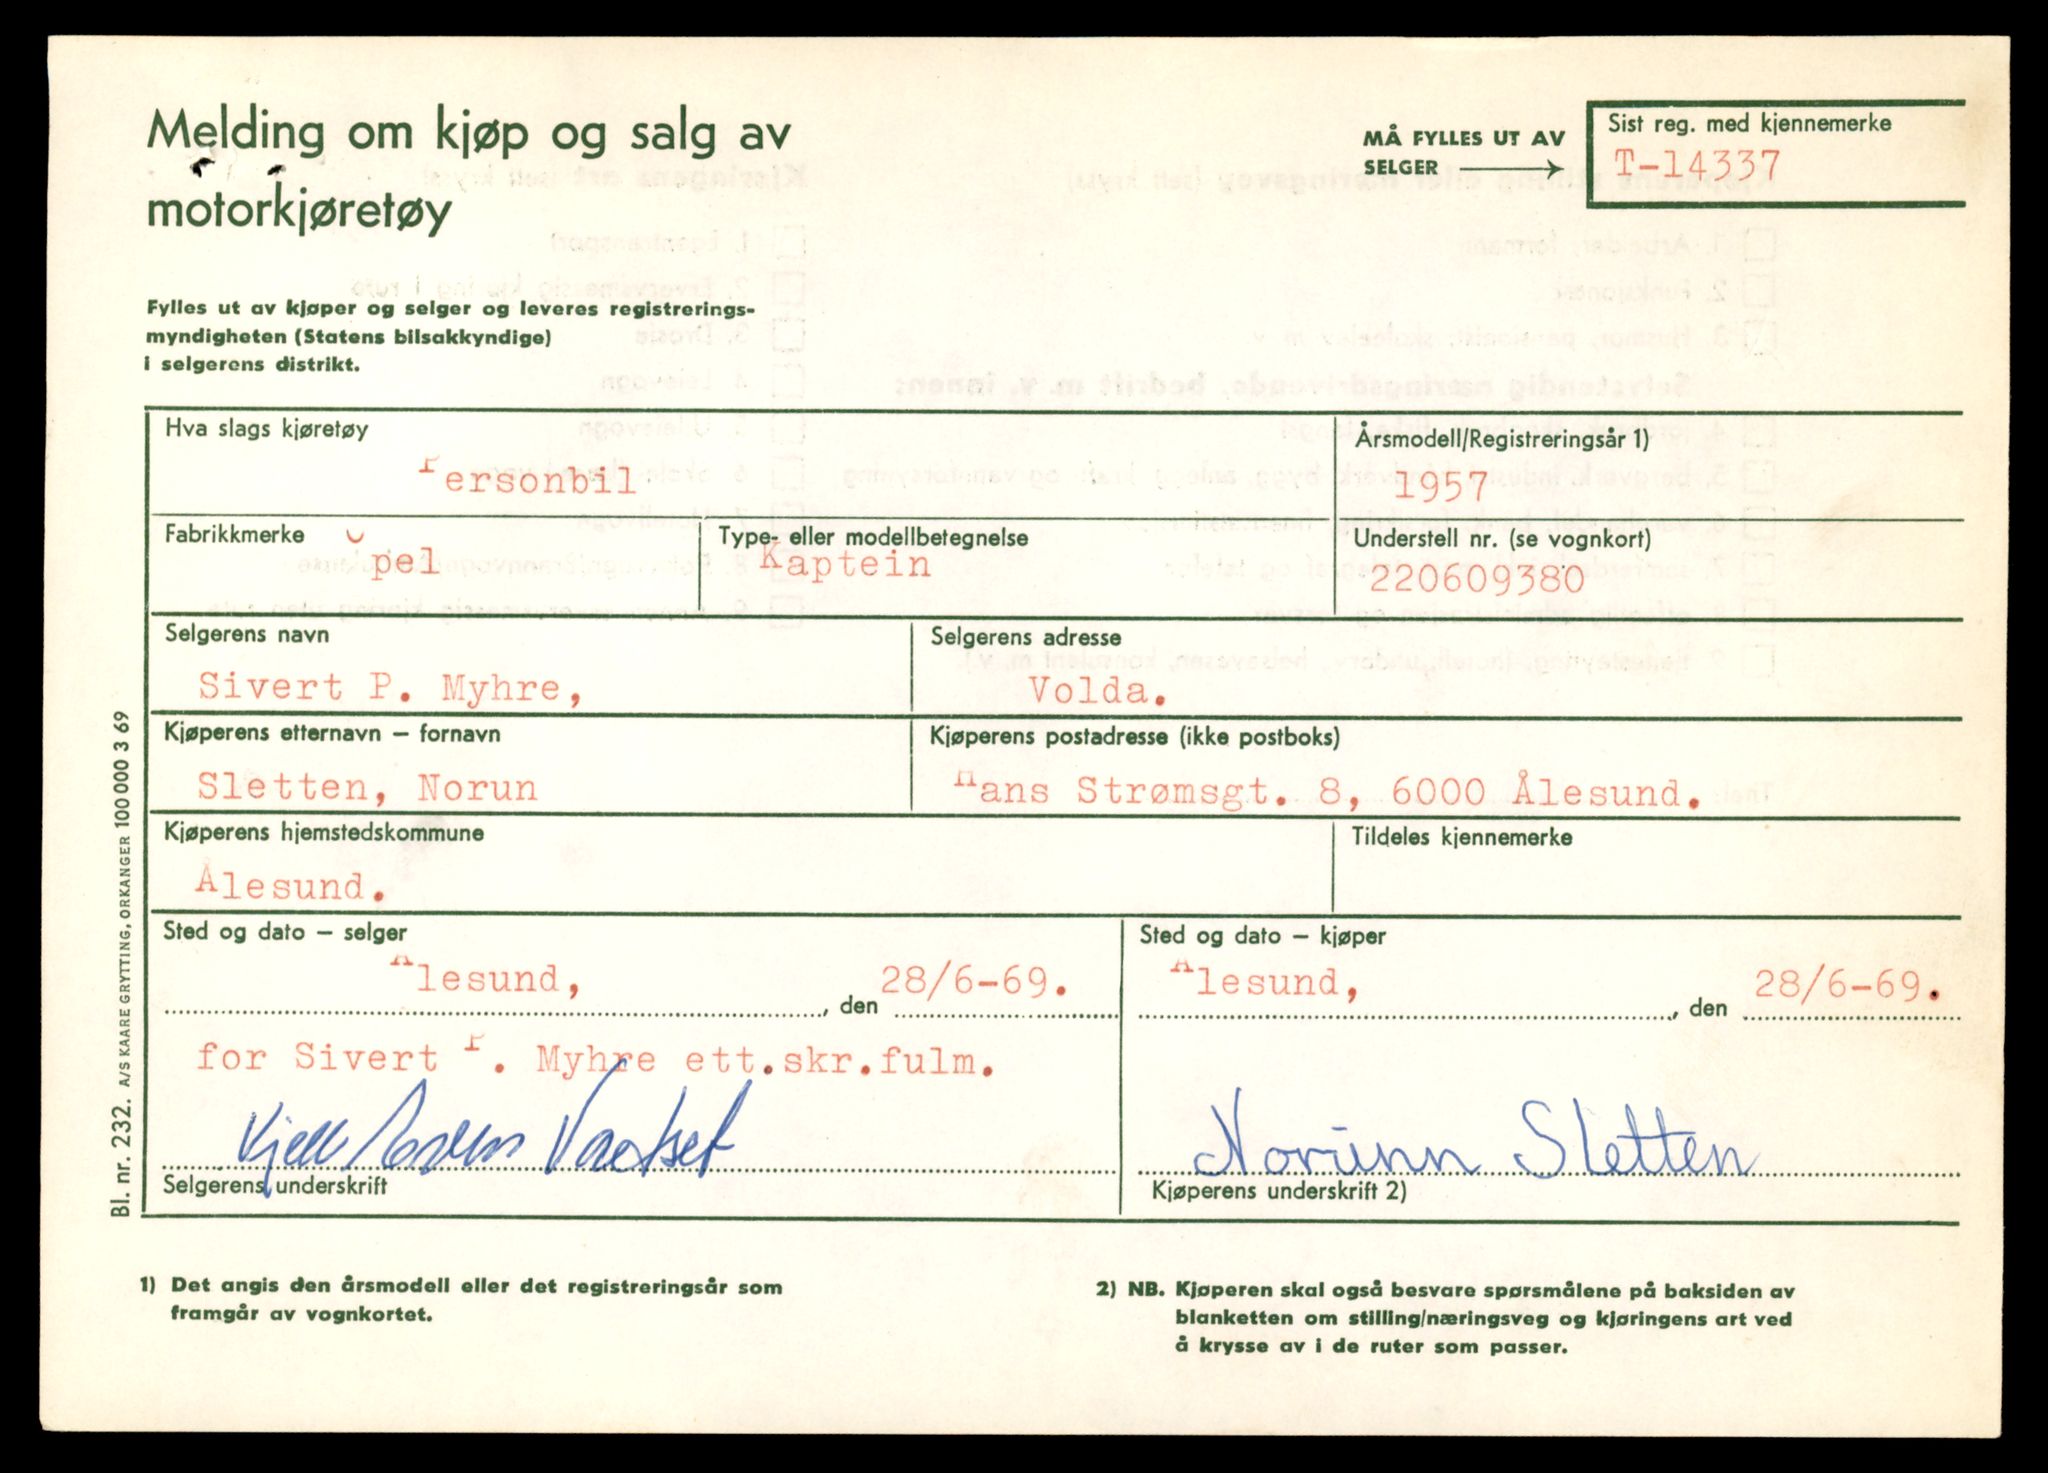 Melding om kjøp og salg av
motorkjøretøy
MÅ FYLLES UT AV
SELGER
Sist reg. med kjennemerke
T-14337
Fylles ut av kjøper og selger og leveres registrerings-
myndigheten (Statens bilsakkyndige)
i selgerens distrikt.
Hva slags kjøretøy
Personbil
Årsmodell/Registreringsår 1)
1957
Fabrikkmerke
Opel
Type- eller modellbetegnelse
Kaptein
Understell nr. (se vognkort)
220609380
Selgerens navn
Sivert P. Myhre,
Selgerens adresse
Volda.
Kjøperens etternavn – fornavn
Sletten, Norun
Kjøperens postadresse (ikke postboks)
Hans Strømsgt. 8, 6000 Ålesund.
Kjøperens hjemstedskommune
Ålesund.
Tildeles kjennemerke
Sted og dato – selger
Ålesund, , den 28/6-69.
Sted og dato – kjøper
Ålesund, , den 28/6-69.
for Sivert P. Myhre ett.skr.fulm.
Kjell
Selgerens underskrift
Norunn Sletten
Kjøperens underskrift 2)
Bl. nr. 232. A/S KAARE GRYTTING, ORKANGER 100 000 3 69
1) Det angis den årsmodell eller det registreringsår som
framgår av vognkortet.
2) NB. Kjøperen skal også besvare spørsmålene på baksiden av
blanketten om stilling/næringsveg og kjøringens art ved
å krysse av i de ruter som passer.